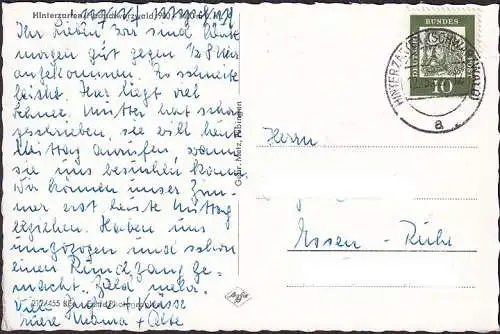 Hinterzarten (Hochschwarzwald)
Ihr Lieben! Wir sind heute
morgen gut gegen 1/2 8 Uhr
angekommen. Es schneite
leicht. Hier liegt viel
Schnee. Mutter hat schon
geschrieben, sie will heute
Mittag anrufen, wann
sie uns besuchen kann.
Wir können unser Zim-
mer erst heute Mittag
beziehen. Haben uns
umgezogen und schon
einen Rundgang ge-
macht. Bald mehr.
Viele Grüße
Eure +
Gebr. Metz, Tübingen
Agfa
DEUTSCHE BUNDESPOST
10
HINTERZARTEN (SCHWARZWALD)
a
Herrn
Essen-Ruhr